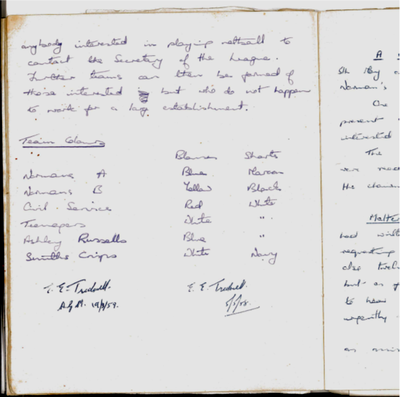 anybody interested in playing netball to
contact the Secretary of the League.
Further teams can then be formed of
those interested but who do not happen
to work for a big establishment.
Team Colours
Blouses Shorts
Normans A Blue Maroon
Normans B Yellow Black
Civil Service Red White
Teenagers White "
Ashley Russells Blue "
Smiths Crisps White Navy
E. E. Treadwell.
A.G.M.
E. E. Treadwell.
A
Norman's
One
present
interested
The
were
the
Matte
had
regretting
also
but as
to hear
urgently
as